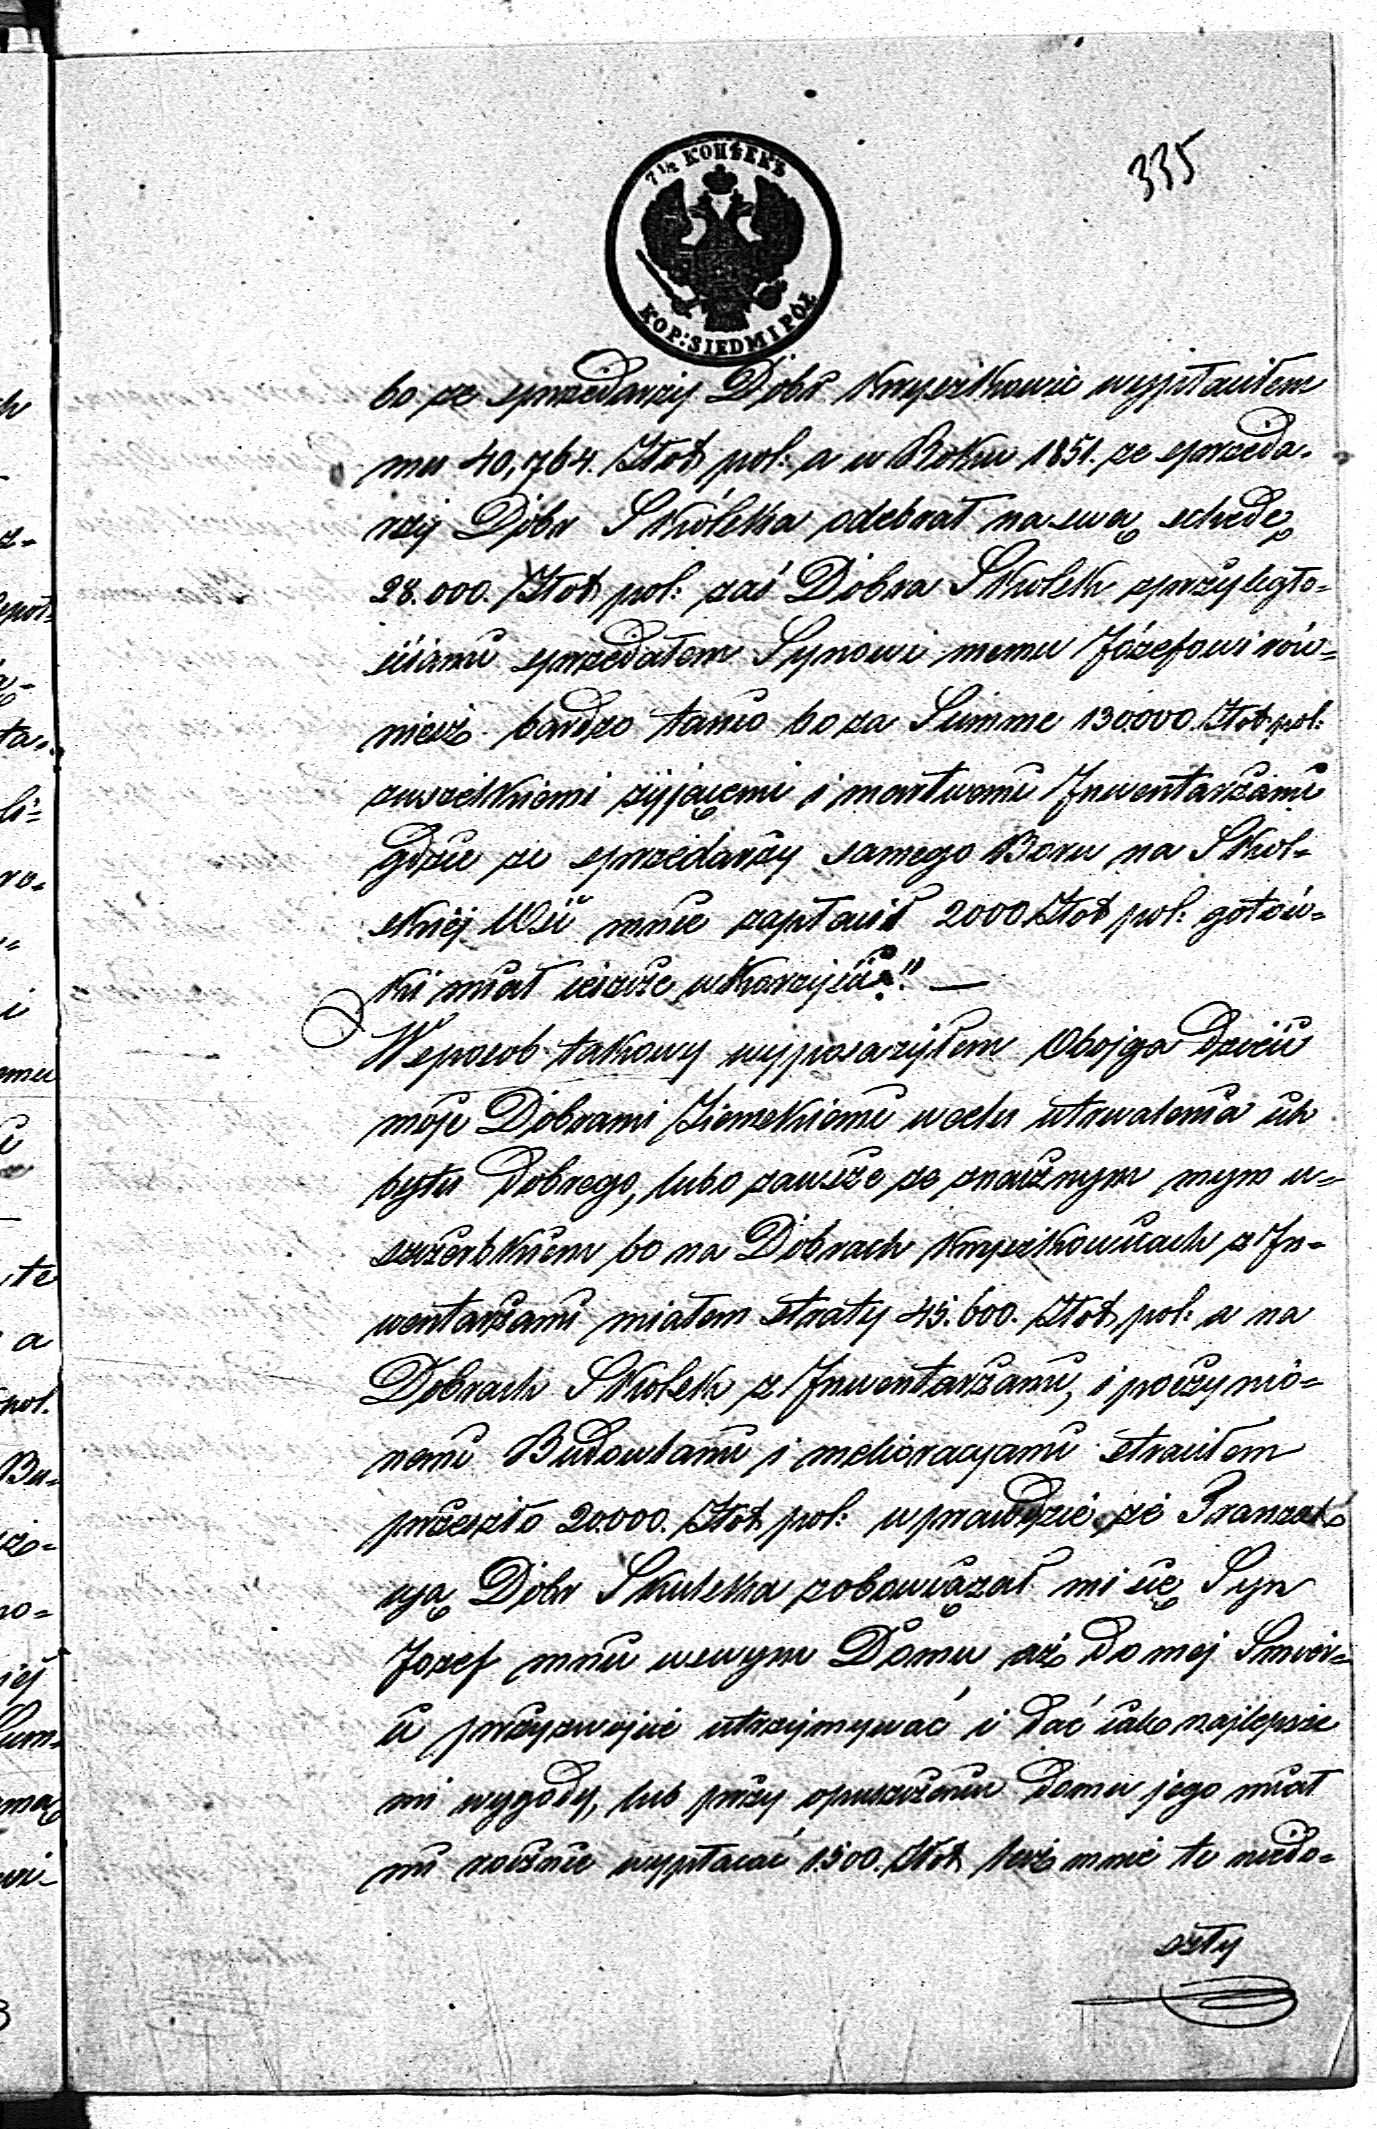 335
7½ КОПѢЕКЪ
KOP: SIEDM I PÓŁ
bo ze sprzedarzy Dóbr Knyszkowic wypłaciłem
mu 40,764. Złot pol: a w Roku 1851. ze sprzeda-
rzy Dóbr Skólska odebrał na swą schedę
28.000. Złot pol: zaś Dobra Skolsk zprzyległo-
ściami sprzedałem Synowi memu Józefowi rów-
nież bardzo tanio bo za Summe 130.000 Złot pol:
zwszelkiemi żyjącemi i martwemi Inwentarzami
gdzie ze sprzedarzy samego Boru na Skol-
skiej Wsi mnie zapłacił 2000 Złot pol: gotów-
ki miał ieszcze w korzyści". —
W sposob takowy wyposarzyłem Obojga Dzieci
moje Dobrami Ziemskiemi w celu utrwalenia ich
bytu Dobrego, lubo zawsze ze znacznym mym u-
szczerbkiem bo na Dobrach Knyszkowicach z In-
wentarzami miałem straty 45.600. Złot pol: a na
Dobrach Skolsk z Inwentarzami, i poczynio-
nemi Budowlami i melioracyami straciłem
przeszło 20.000. Złot pol: wprawdzie że Tranzak
cyą Dóbr Skulska zobowiązał mi się Syn
Jozef mnie w swym Domu aż do mej Śmier-
ci przyzwojcie utrzymywać i dać iako najlepsze
mi wygody, lub przy opuszczeniu domu jego miał
mi rocznie wypłacać 1500. Złot lecz mnie te niedo-
szły